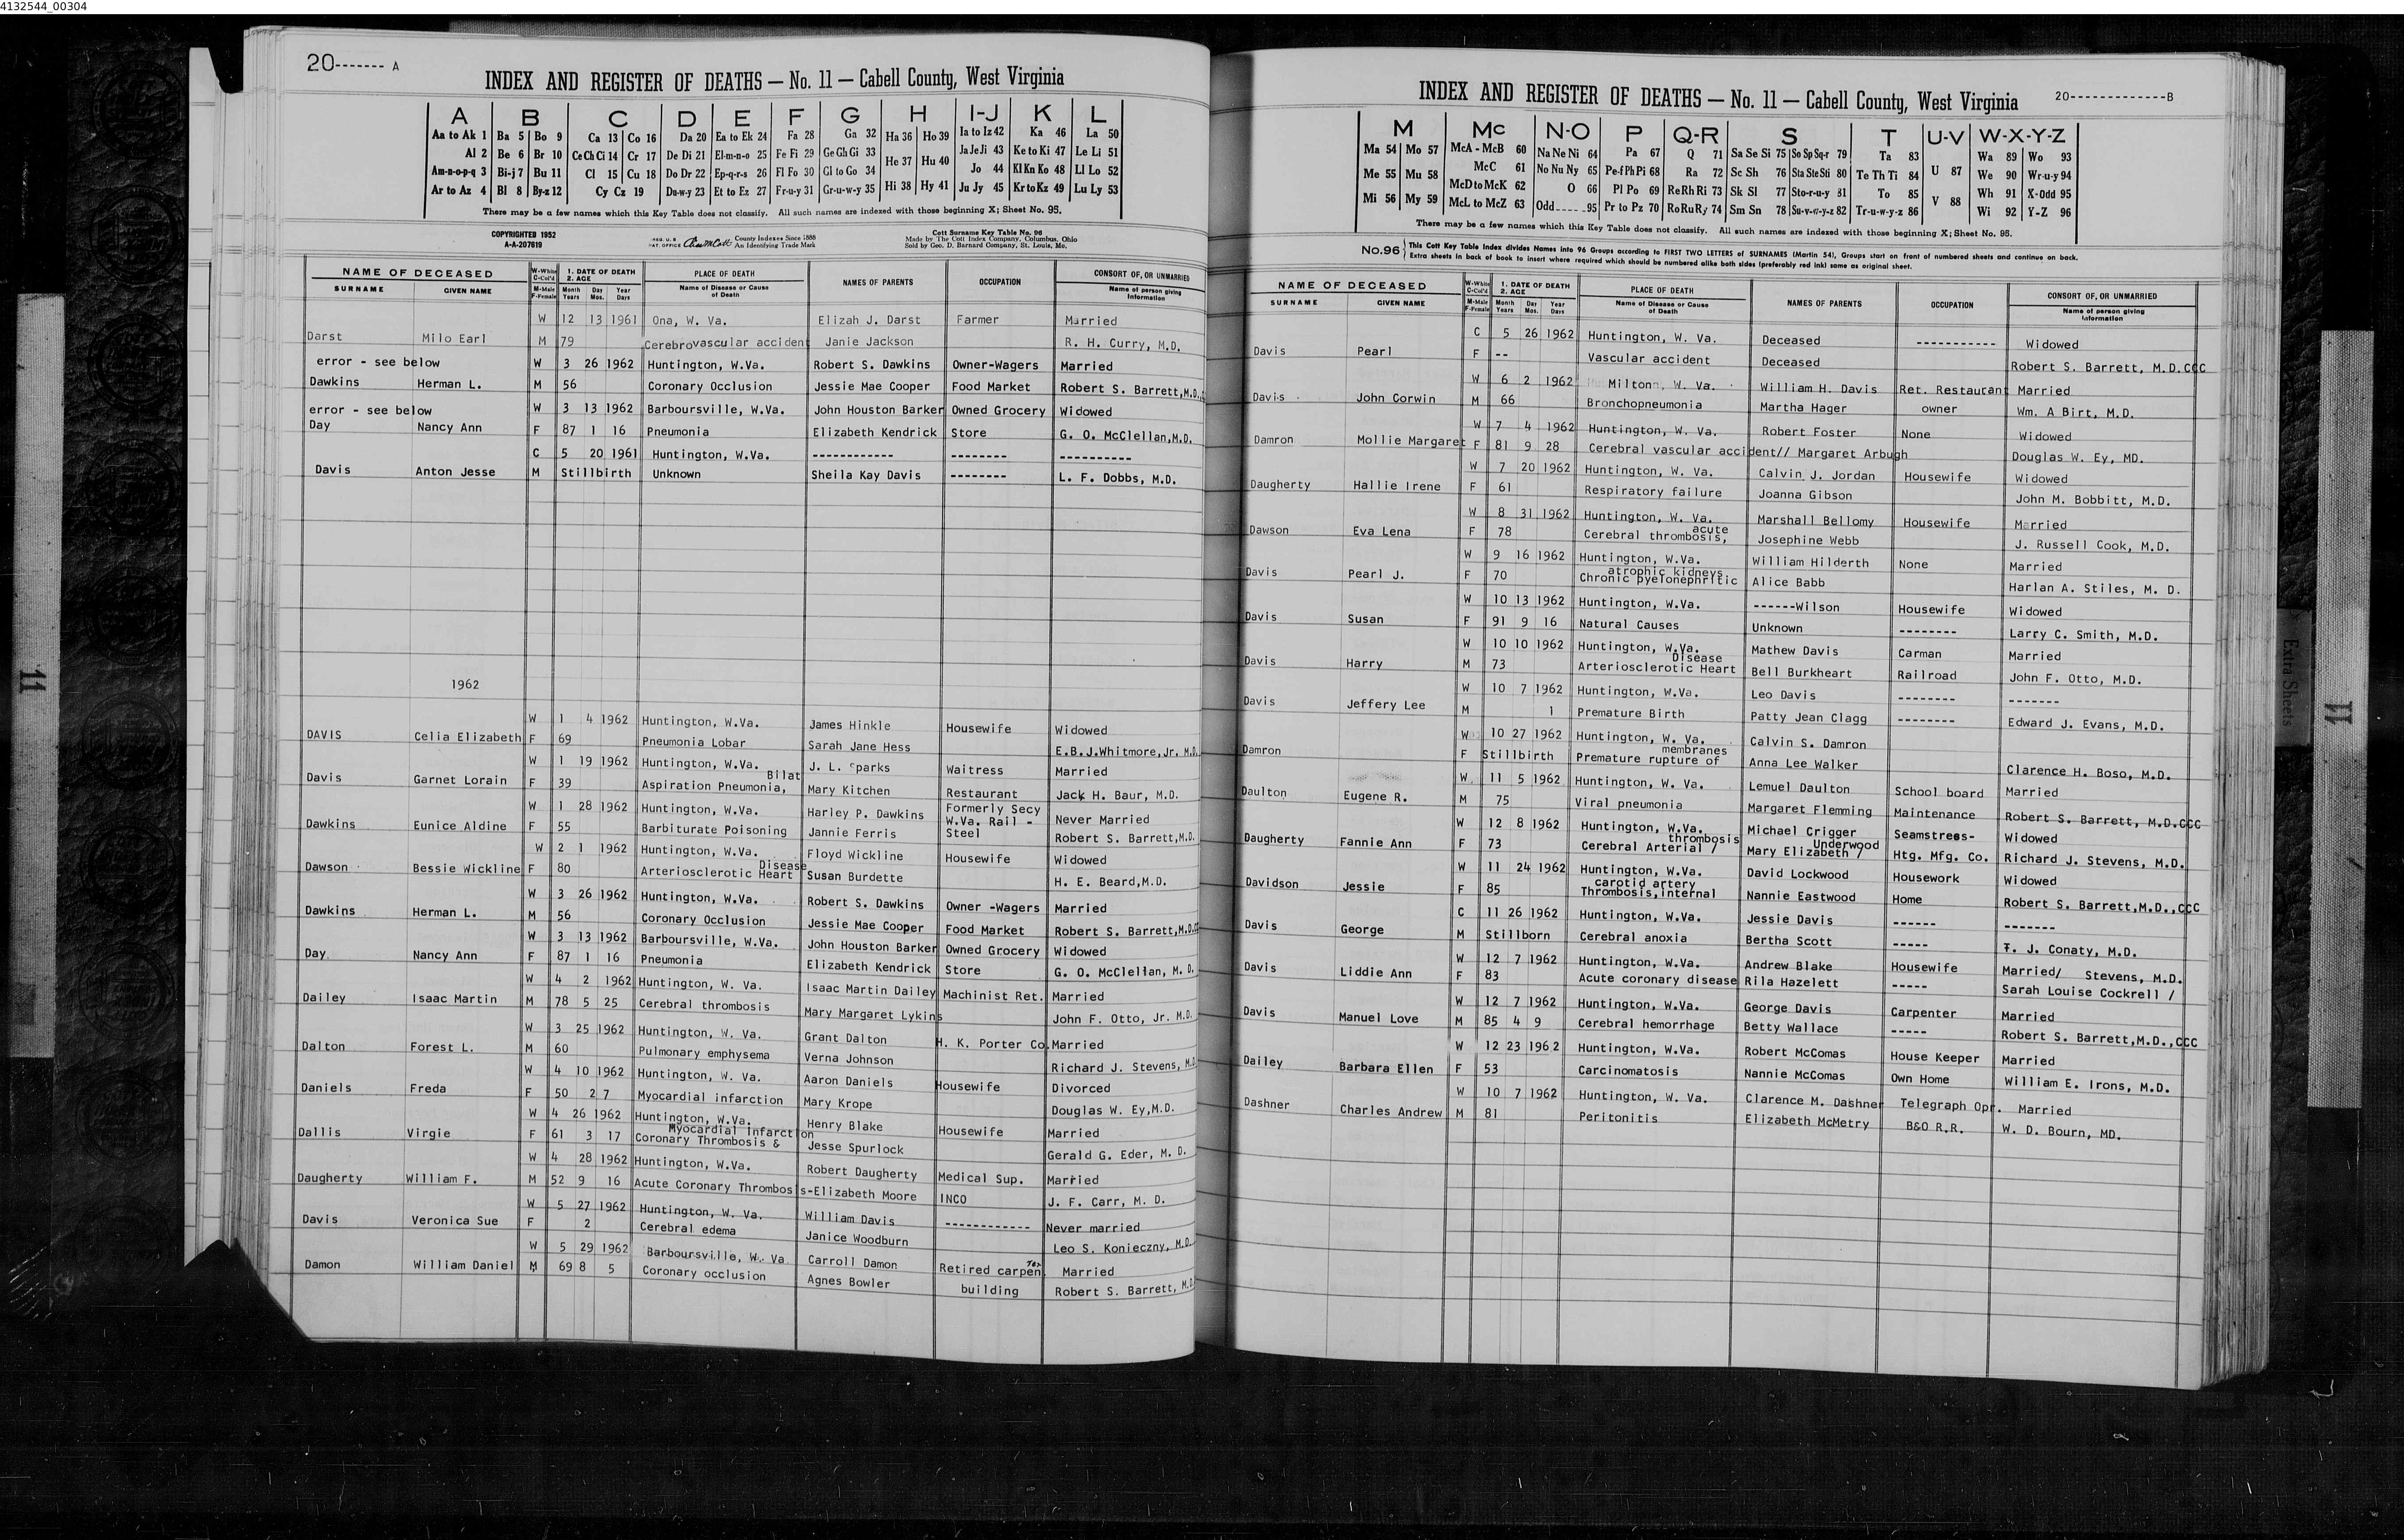 4132544_00304
20------- A
INDEX AND REGISTER OF DEATHS — No. 11 — Cabell County, West Virginia
A B C D E F G H I-J K L
Aa to Ak 1 Ba 5 Bo 9 Ca 13 Co 16 Da 20 Ea to Ek 24 Fa 28 Ga 32 Ha 36 Ho 39 Ia to Iz 42 Ka 46 La 50
Al 2 Be 6 Br 10 Ce Ch Ci 14 Cr 17 De Di 21 El-m-n-o 25 Fe Fi 29 Ge Gh Gi 33 He 37 Hu 40 Ja Je Ji 43 Ke to Ki 47 Le Li 51
Am-n-o-p-q 3 Bi-j 7 Bu 11 Cl 15 Cu 18 Do Dr 22 Ep-q-r-s 26 Fl Fo 30 Gl to Go 34 Jo 44 Kl Kn Ko 48 Ll Lo 52
Ar to Az 4 Bl 8 By-z 12 Cy Cz 19 Du-w-y 23 Et to Ez 27 Fr-u-y 31 Gr-u-w-y 35 Hi 38 Hy 41 Ju Jy 45 Kr to Kz 49 Lu Ly 53
There may be a few names which this Key Table does not classify. All such names are indexed with those beginning X; Sheet No. 95.
COPYRIGHTED 1952
A-A-207619
REG. U.S. PAT. OFFICE
County Indexes Since 1888
An Identifying Trade Mark
Cott Surname Key Table No. 96
Made by The Cott Index Company, Columbus, Ohio
Sold by Geo. D. Barnard Company, St. Louis, Mo.
NAME OF DECEASED W-White C-Col'd 1. DATE OF DEATH 2. AGE PLACE OF DEATH NAMES OF PARENTS OCCUPATION CONSORT OF, OR UNMARRIED
SURNAME GIVEN NAME M-Male F-Female Month Years Day Mos. Year Days Name of Disease or Cause of Death Name of person giving Information
W 12 13 1961 Ona, W. Va. Elizah J. Darst Farmer Married
Darst Milo Earl M 79 Cerebrovascular acciden Janie Jackson R. H. Curry, M.D.
error - see below W 3 26 1962 Huntington, W.Va. Robert S. Dawkins Owner-Wagers Married
Dawkins Herman L. M 56 Coronary Occlusion Jessie Mae Cooper Food Market Robert S. Barrett,M.D.
error - see below W 3 13 1962 Barboursville, W.Va. John Houston Barker Owned Grocery Widowed
Day Nancy Ann F 87 1 16 Pneumonia Elizabeth Kendrick Store G. O. McClellan,M.D.
C 5 20 1961 Huntington, W.Va. ------------ -------- ----------
Davis Anton Jesse M Stillbirth Unknown Sheila Kay Davis -------- L. F. Dobbs, M.D.
1962
W 1 4 1962 Huntington, W.Va. James Hinkle Housewife Widowed
DAVIS Celia Elizabeth F 69 Pneumonia Lobar Sarah Jane Hess E.B.J.Whitmore,Jr. M.D.
W 1 19 1962 Huntington, W.Va. J. L. Sparks Waitress Married
Davis Garnet Lorain F 39 Aspiration Pneumonia, Bilat Mary Kitchen Restaurant Jack H. Baur, M.D.
W 1 28 1962 Huntington, W.Va. Harley P. Dawkins Formerly Secy W.Va. Rail - Never Married
Dawkins Eunice Aldine F 55 Barbiturate Poisoning Jannie Ferris Steel Robert S. Barrett,M.D.
W 2 1 1962 Huntington, W.Va. Floyd Wickline Housewife Widowed
Dawson Bessie Wickline F 80 Arteriosclerotic Heart Disease Susan Burdette H. E. Beard,M.D.
W 3 26 1962 Huntington, W.Va. Robert S. Dawkins Owner -Wagers Married
Dawkins Herman L. M 56 Coronary Occlusion Jessie Mae Cooper Food Market Robert S. Barrett,M.D.
W 3 13 1962 Barboursville, W.Va. John Houston Barker Owned Grocery Widowed
Day Nancy Ann F 87 1 16 Pneumonia Elizabeth Kendrick Store G. O. McClellan, M. D.
W 4 2 1962 Huntington, W. Va. Isaac Martin Dailey Machinist Ret. Married
Dailey Isaac Martin M 78 5 25 Cerebral thrombosis Mary Margaret Lykins John F. Otto, Jr. M.D.
W 3 25 1962 Huntington, W. Va. Grant Dalton H. K. Porter Co. Married
Dalton Forest L. M 60 Pulmonary emphysema Verna Johnson Richard J. Stevens, M.D.
W 4 10 1962 Huntington, W. Va. Aaron Daniels Housewife Divorced
Daniels Freda F 50 2 7 Myocardial infarction Mary Krope Douglas W. Ey,M.D.
W 4 26 1962 Huntington, W.Va. Henry Blake Housewife Married
Dallis Virgie F 61 3 17 Coronary Thrombosis & Myocardial Infarction Jesse Spurlock Gerald G. Eder, M. D.
W 4 28 1962 Huntington, W.Va. Robert Daugherty Medical Sup. Married
Daugherty William F. M 52 9 16 Acute Coronary Thrombosis-Elizabeth Moore INCO J. F. Carr, M. D.
W 5 27 1962 Huntington, W. Va. William Davis ------------ Never married
Davis Veronica Sue F 2 Cerebral edema Janice Woodburn Leo S. Konieczny, M.D.
W 5 29 1962 Barboursville, W. Va Carroll Damon Retired carpenter Married
Damon William Daniel M 69 8 5 Coronary occlusion Agnes Bowler building Robert S. Barrett, M.D.
INDEX AND REGISTER OF DEATHS — No. 11 — Cabell County, West Virginia
20-------------B
M Mc N-O P Q-R S T U-V W-X-Y-Z
Ma 54 Mo 57 McA - McB 60 Na Ne Ni 64 Pa 67 Q 71 Sa Se Si 75 So Sp Sq-r 79 Ta 83 U 87 Wa 89 Wo 93
Me 55 Mu 58 McC 61 No Nu Ny 65 Pe-f Ph Pi 68 Ra 72 Sc Sh 76 Sta Ste Sti 80 Te Th Ti 84 We 90 Wr-u-y 94
McD to McK 62 O 66 Pl Po 69 Re Rh Ri 73 Sk Sl 77 Sto-r-u-y 81 To 85 V 88 Wh 91 X-Odd 95
Mi 56 My 59 McL to McZ 63 Odd 95 Pr to Pz 70 Ro Ru Ry 74 Sm Sn 78 Su-v-w-y-z 82 Tr-u-w-y-z 86 Wi 92 Y-Z 96
There may be a few names which this Key Table does not classify. All such names are indexed with those beginning X; Sheet No. 95.
No.96 This Cott Key Table Index divides Names into 96 Groups according to FIRST TWO LETTERS of SURNAMES (Martin 54), Groups start on front of numbered sheets and continue on back.
Extra sheets in back of book to insert where required which should be numbered alike both sides (preferably red ink) same as original sheet.
NAME OF DECEASED W-White C-Col'd 1. DATE OF DEATH 2. AGE PLACE OF DEATH NAMES OF PARENTS OCCUPATION CONSORT OF, OR UNMARRIED
SURNAME GIVEN NAME M-Male F-Female Month Years Day Mos. Year Days Name of Disease or Cause of Death Name of person giving Information
C 5 26 1962 Huntington, W. Va. Deceased ----------- Widowed
Davis Pearl F -- Vascular accident Deceased Robert S. Barrett, M.D.CCC
W 6 2 1962 Milton, W. Va. William H. Davis Ret. Restaurant Married
Davis John Corwin M 66 Bronchopneumonia Martha Hager owner Wm. A Birt, M.D.
W 7 4 1962 Huntington, W. Va. Robert Foster None Widowed
Damron Mollie Margaret F 81 9 28 Cerebral vascular accident// Margaret Arbugh Douglas W. Ey, MD.
W 7 20 1962 Huntington, W. Va. Calvin J. Jordan Housewife Widowed
Daugherty Hallie Irene F 61 Respiratory failure Joanna Gibson John M. Bobbitt, M.D.
W 8 31 1962 Huntington, W. Va. Marshall Bellomy Housewife Married
Dawson Eva Lena F 78 Cerebral thrombosis, acute Josephine Webb J. Russell Cook, M.D.
W 9 16 1962 Huntington, W.Va. William Hilderth None Married
Davis Pearl J. F 70 Chronic pyelonephritic atrophic kidneys Alice Babb Harlan A. Stiles, M. D.
W 10 13 1962 Huntington, W.Va. ------Wilson Housewife Widowed
Davis Susan F 91 9 16 Natural Causes Unknown -------- Larry C. Smith, M.D.
W 10 10 1962 Huntington, W.Va. Mathew Davis Carman Married
Davis Harry M 73 Arteriosclerotic Heart Disease Bell Burkheart Railroad John F. Otto, M.D.
W 10 7 1962 Huntington, W.Va. Leo Davis -------- -------
Davis Jeffery Lee M 1 Premature Birth Patty Jean Clagg -------- Edward J. Evans, M.D.
W 10 27 1962 Huntington, W. Va. Calvin S. Damron
Damron F Stillbirth Premature rupture of membranes Anna Lee Walker Clarence H. Boso, M.D.
W. 11 5 1962 Huntington, W. Va. Lemuel Daulton School board Married
Daulton Eugene R. M 75 Viral pneumonia Margaret Flemming Maintenance Robert S. Barrett, M.D.CCC
W 12 8 1962 Huntington, W.Va. Michael Crigger Seamstress- Widowed
Daugherty Fannie Ann F 73 Cerebral Arterial / thrombosis Mary Elizabeth / Underwood Htg. Mfg. Co. Richard J. Stevens, M.D.
W 11 24 1962 Huntington, W.Va. David Lockwood Housework Widowed
Davidson Jessie F 85 Thrombosis,internal carotid artery Nannie Eastwood Home Robert S. Barrett,M.D.,CCC
C 11 26 1962 Huntington, W.Va. Jessie Davis ------ -------
Davis George M Stillborn Cerebral anoxia Bertha Scott ----- T. J. Conaty, M.D.
W 12 7 1962 Huntington, W.Va. Andrew Blake Housewife Married/ Stevens, M.D.
Davis Liddie Ann F 83 Acute coronary disease Rila Hazelett ----- Sarah Louise Cockrell /
W 12 7 1962 Huntington, W.Va. George Davis Carpenter Married
Davis Manuel Love M 85 4 9 Cerebral hemorrhage Betty Wallace ----- Robert S. Barrett,M.D.,CCC
W 12 23 1962 Huntington, W.Va. Robert McComas House Keeper Married
Dailey Barbara Ellen F 53 Carcinomatosis Nannie McComas Own Home William E. Irons, M.D.
W 10 7 1962 Huntington, W. Va. Clarence M. Dashner Telegraph Opr. Married
Dashner Charles Andrew M 81 Peritonitis Elizabeth McMetry B&O R.R. W. D. Bourn, MD.
11
Extra Sheets
11